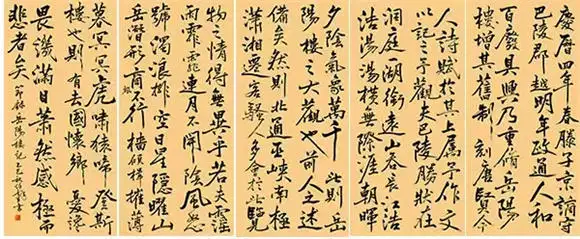 慶曆四年春滕子京謫守
巴陵郡越明年政通人和
百廢具興乃重脩岳陽
樓增其舊制刻唐賢今
人詩賦於其上屬予作文
以記之予觀夫巴陵勝狀在
洞庭一湖銜遠山吞長江浩
浩湯湯橫無際涯朝暉
夕陰氣象萬千此則岳
陽樓之大觀也前人之述
備矣然則北通巫峽南極
瀟湘遷客騷人多會於此覽
物之情得無異乎若夫霪
雨霏霏連月不開陰風怒
號濁浪排空日星隱曜山
岳潛形商旅不行檣傾楫摧薄
暮冥冥虎嘯猿啼登斯
樓也則有去國懷鄉憂讒
畏譏滿目蕭然感極而
悲者矣 節錄岳陽樓記